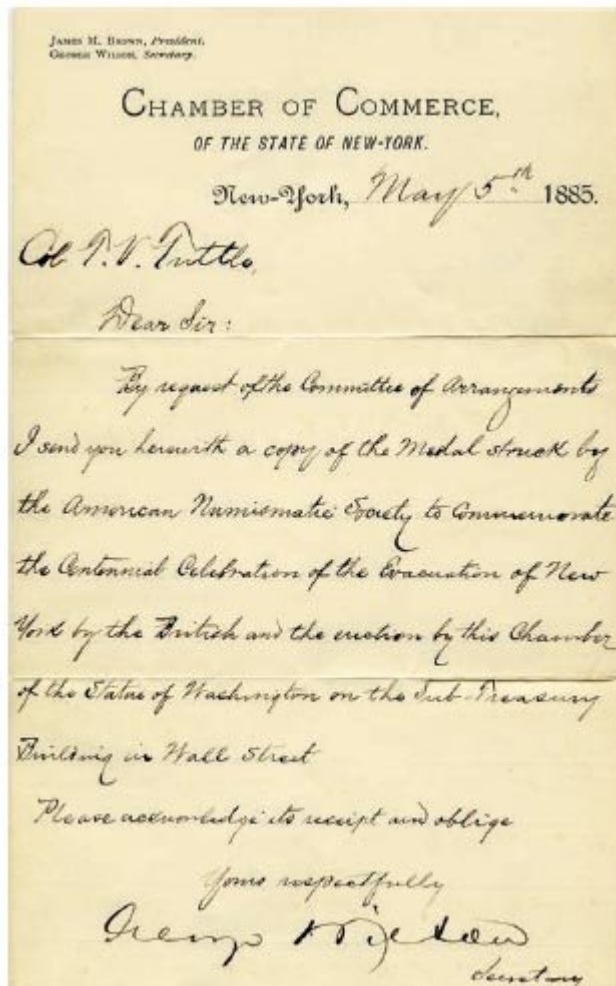 JAMES M. BROWN, President.
GEORGE WILSON, Secretary.
CHAMBER OF COMMERCE,
OF THE STATE OF NEW-YORK.
New-York, May 5th 1885.
Col T. V. Tuttle,
Dear Sir:
By request of the Committee of Arrangements
I send you herewith a copy of the Medal struck by
the American Numismatic Society to Commemorate
the Centennial Celebration of the Evacuation of New
York by the British and the erection by this Chamber
of the Statue of Washington on the Sub-Treasury
Building in Wall Street
Please acknowledge its receipt and oblige
Yours respectfully
George Wilson
Secretary